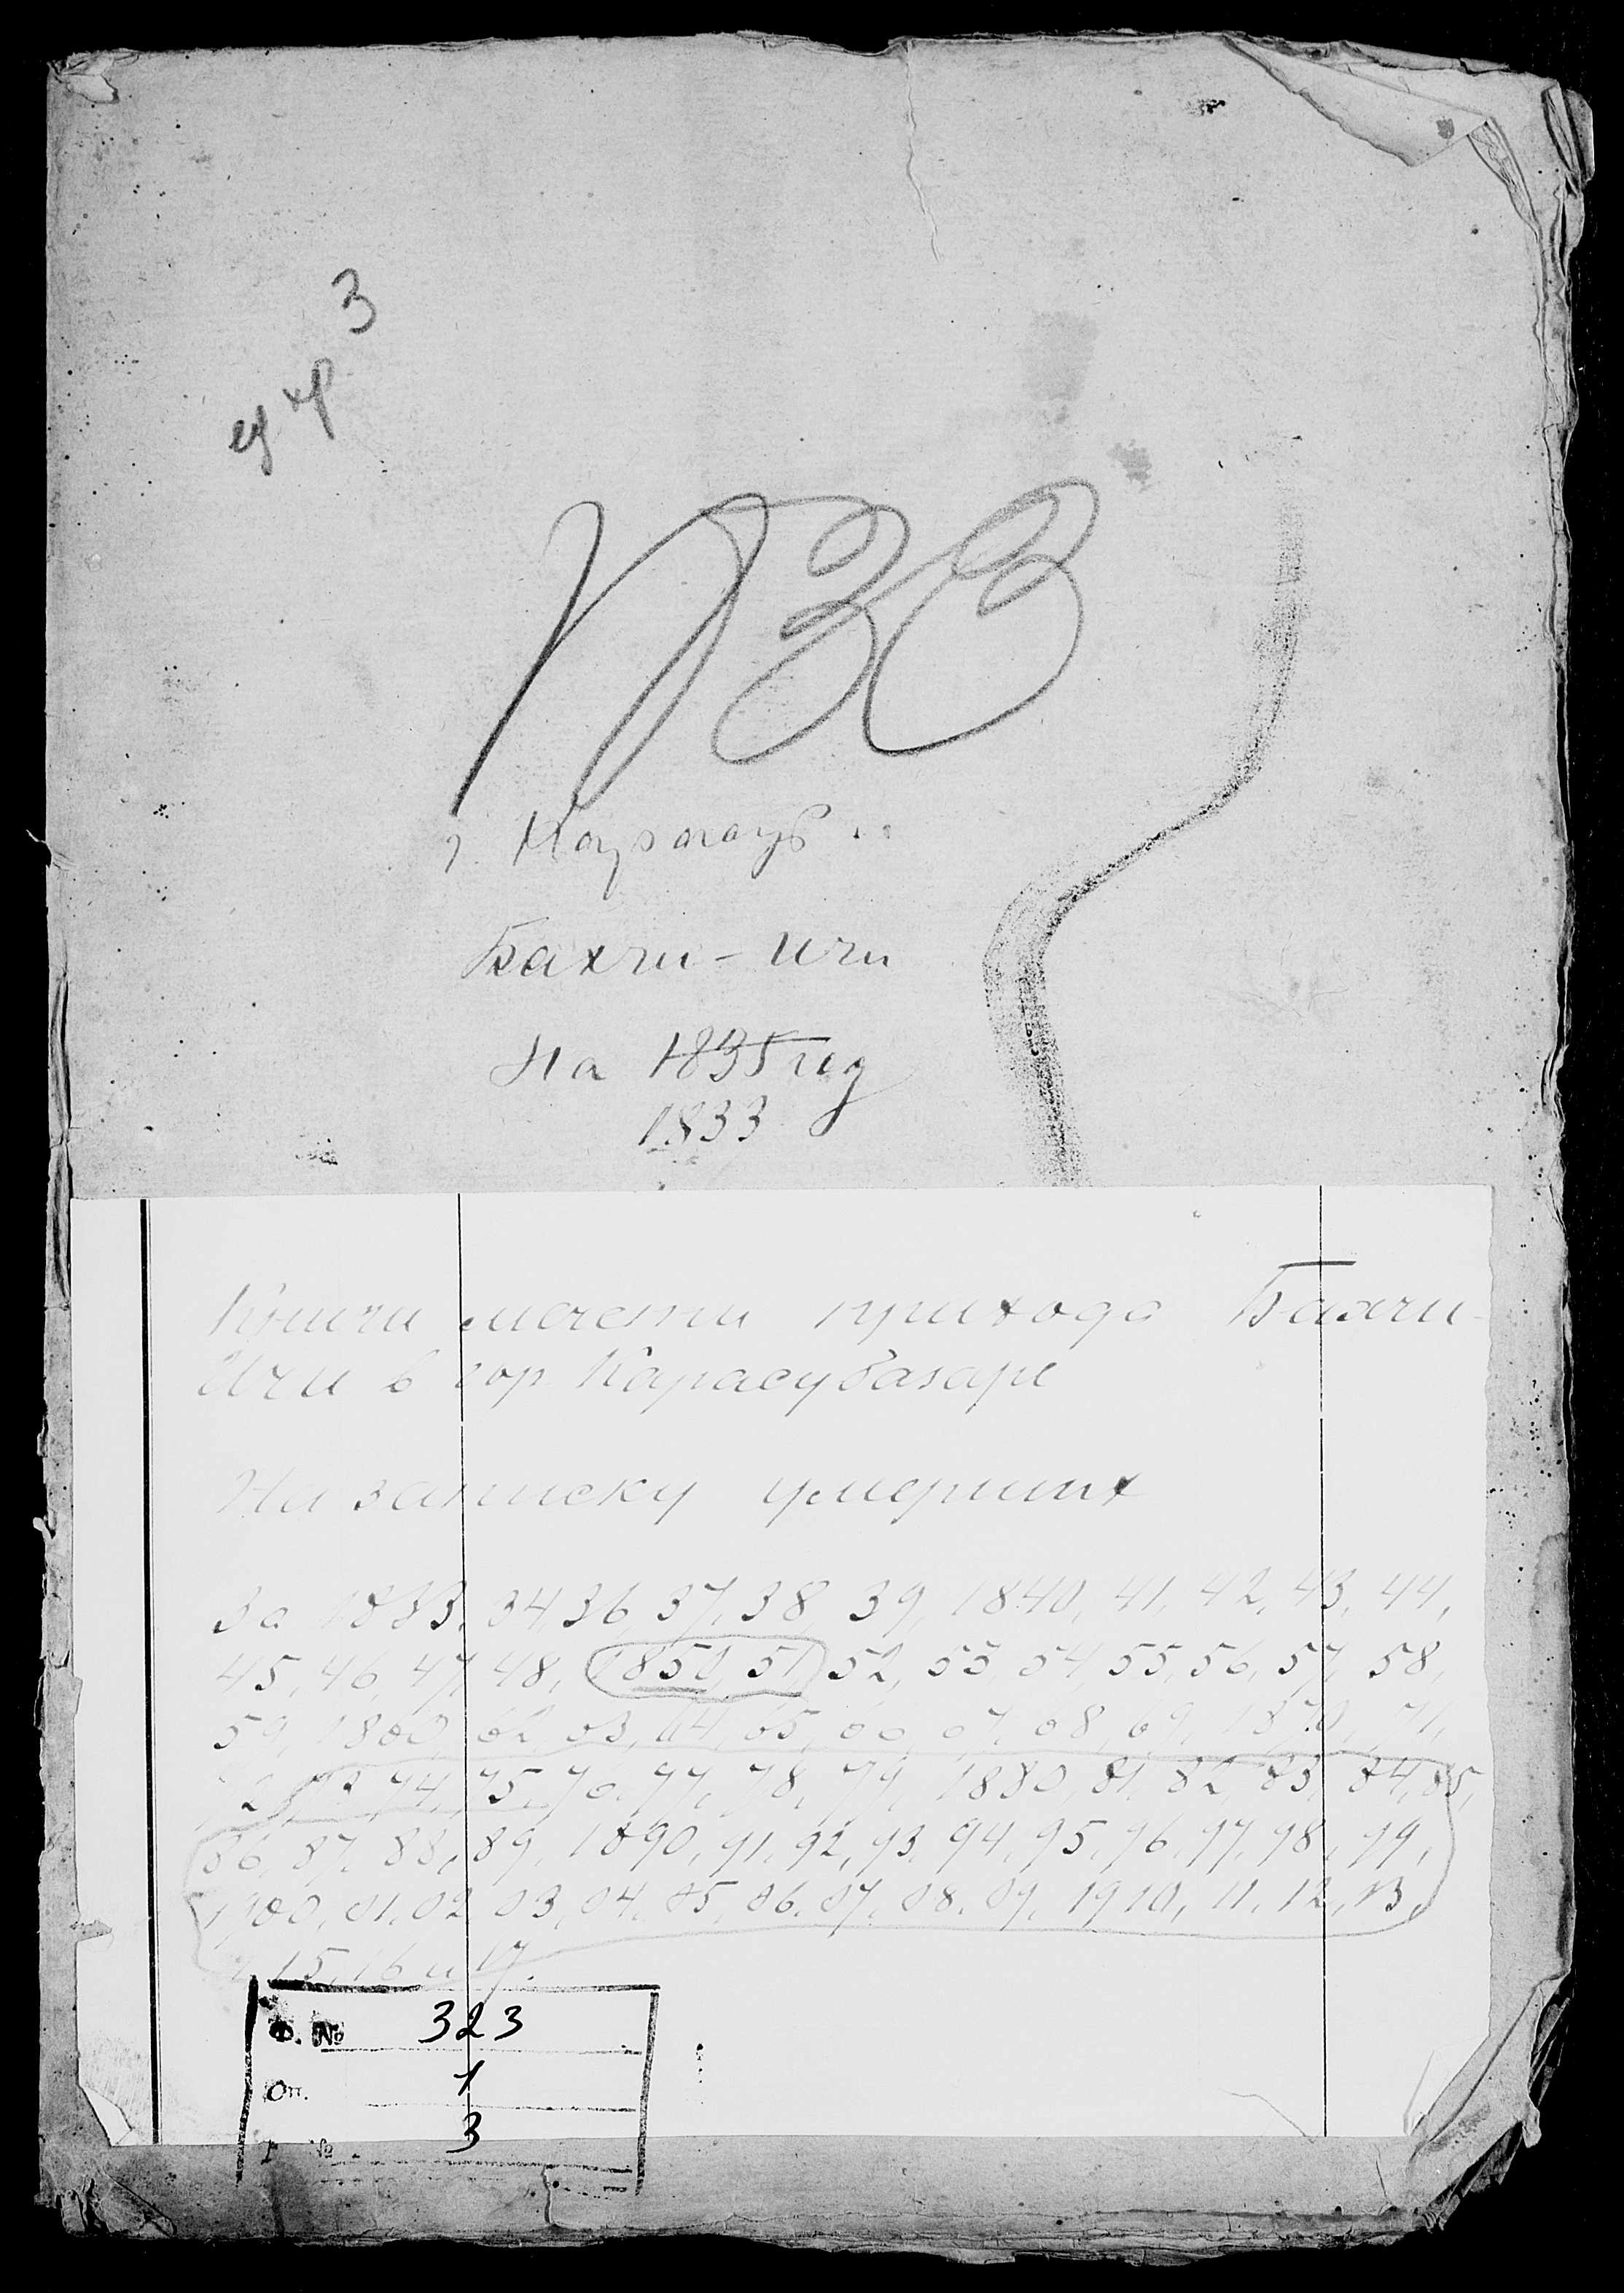 3
ед хр
N33
г. Карасуб
Бахчи-Ичи
На 1835 год
1833
Книги мечети прихода Бахчи-
Ичи в гор Карасубазаре
На записку умерших
За 1833, 34 36, 37, 38, 39, 1840, 41, 42, 43, 44,
45, 46, 47, 48, 1850, 51 52, 53, 54 55, 56, 57, 58,
59, 1860, 62, 63, 64, 65, 66, 67, 68, 69, 1870, 71,
72, 73 74, 75, 76, 77, 78, 79, 1880, 81, 82, 83, 84, 85,
86, 87, 88, 89, 1890, 91, 92, 93, 94, 95, 96, 97, 98, 99,
1900, 01, 02 03, 04, 05, 06, 07, 08, 09, 1910, 11, 12, 13,
15, 16 и 17.
Ф. № 323
Оп. 1
№ 3